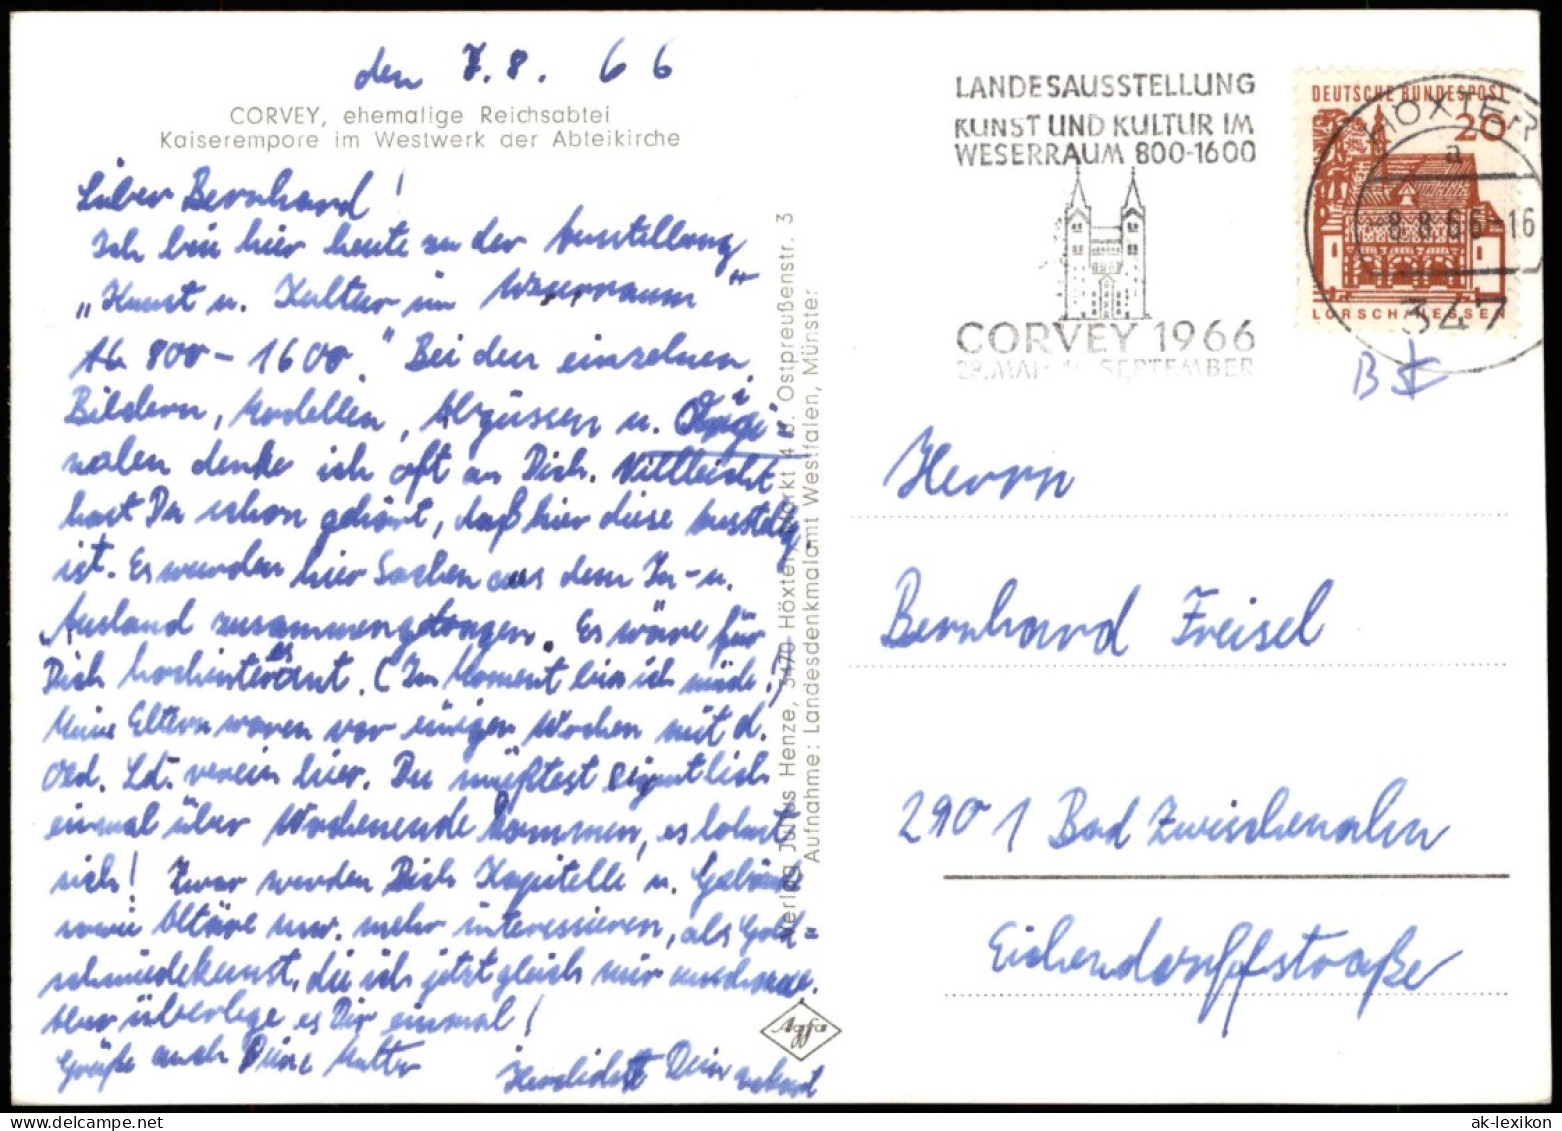 den 7.8.66
CORVEY, ehemalige Reichsabtei
Kaiserempore im Westwerk der Abteikirche
Lieber Bernhard!
Ich bin hier heute zu der Ausstellung
„Kunst u. Kultur im Weserraum"
Ab 800-1600." Bei den einzelnen
Bildern, Modellen, Abgüssen u. Origi-
nalen denke ich oft an Dich. Vielleicht
hast Du schon gehört, daß hier diese Ausstellg.
ist. Es wurden hier Sachen aus dem In- u.
Ausland zusammengetragen. Es wäre für
Dich hochinteressant. (Im Moment bin ich müde!)
Meine Eltern waren vor einigen Wochen mit d.
Old. Ld. verein hier. Du müßtest eigentlich
einmal über Wochenende kommen, es lohnt
sich! Zwar werden Dich Kapitelle u. Gebäude
sowie Altäre usw. mehr interessieren, als Gold=
schmiedekunst, die ich jetzt gleich mir
Aber überlege es Dir einmal!
Grüße auch Deine Mutter
Herzlichst Dein
Verlag Julius Henze, 3470 Höxter, Markt 4 u. Ostpreußenstr. 3
Aufnahme: Landesdenkmalamt Westfalen, Münster
Agfa
LANDESAUSSTELLUNG
KUNST UND KULTUR IM
WESERRAUM 800-1600
CORVEY 1966
28.MAI- SEPTEMBER
DEUTSCHE BUNDESPOST
20
LORSCH/HESSEN
HÖXTER
a
-8.8.66-16
347
B
Herrn
Bernhard Freisel
2901 Bad Zwischenahn
Eichendorffstraße
ak-lexikon